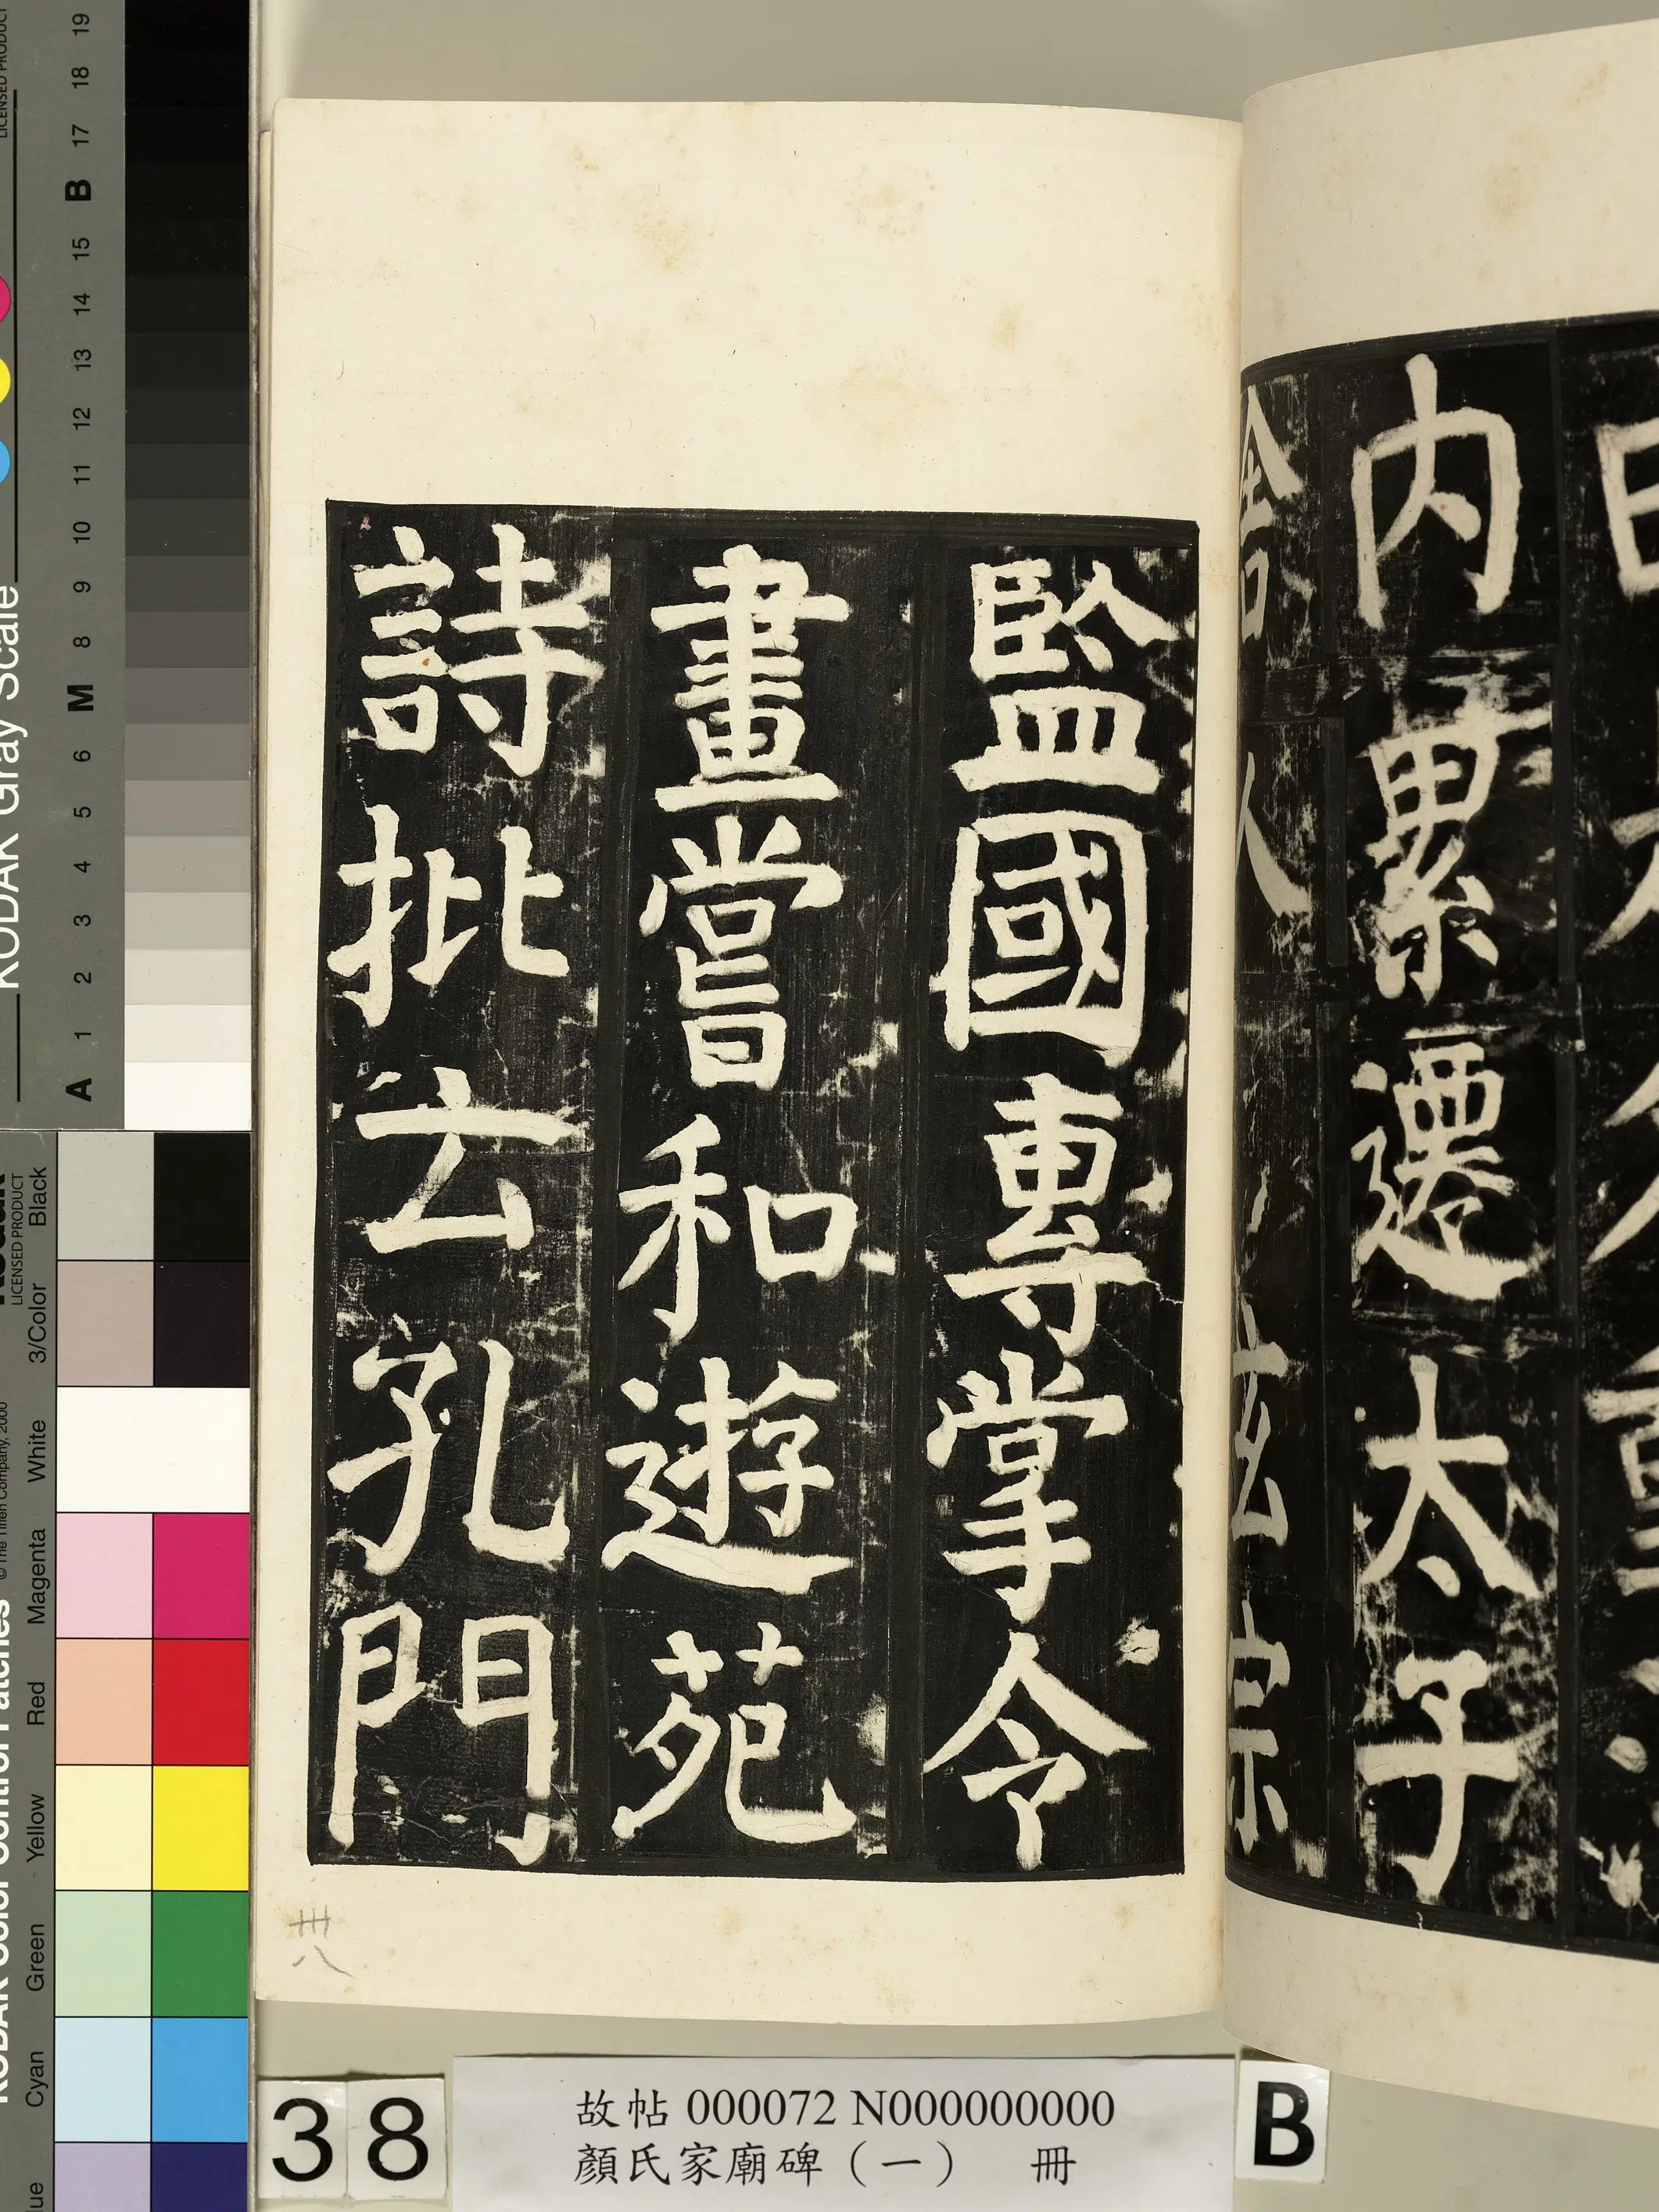 內累遷太子
舍人玄宗
監國專掌令
畫嘗和遊苑
詩批云孔門
卅八
38
故帖 000072 N000000000
顏氏家廟碑（一） 冊
B
KODAK Gray Scale
LICENSED PRODUCT
A 1 2 3 4 5 6 M 8 9 10 11 12 13 14 15 B 17 18 19
KODAK Color Control Patches
© The Tiffen Company, 2000
Kodak
LICENSED PRODUCT
Cyan Green Yellow Red Magenta White 3/Color Black